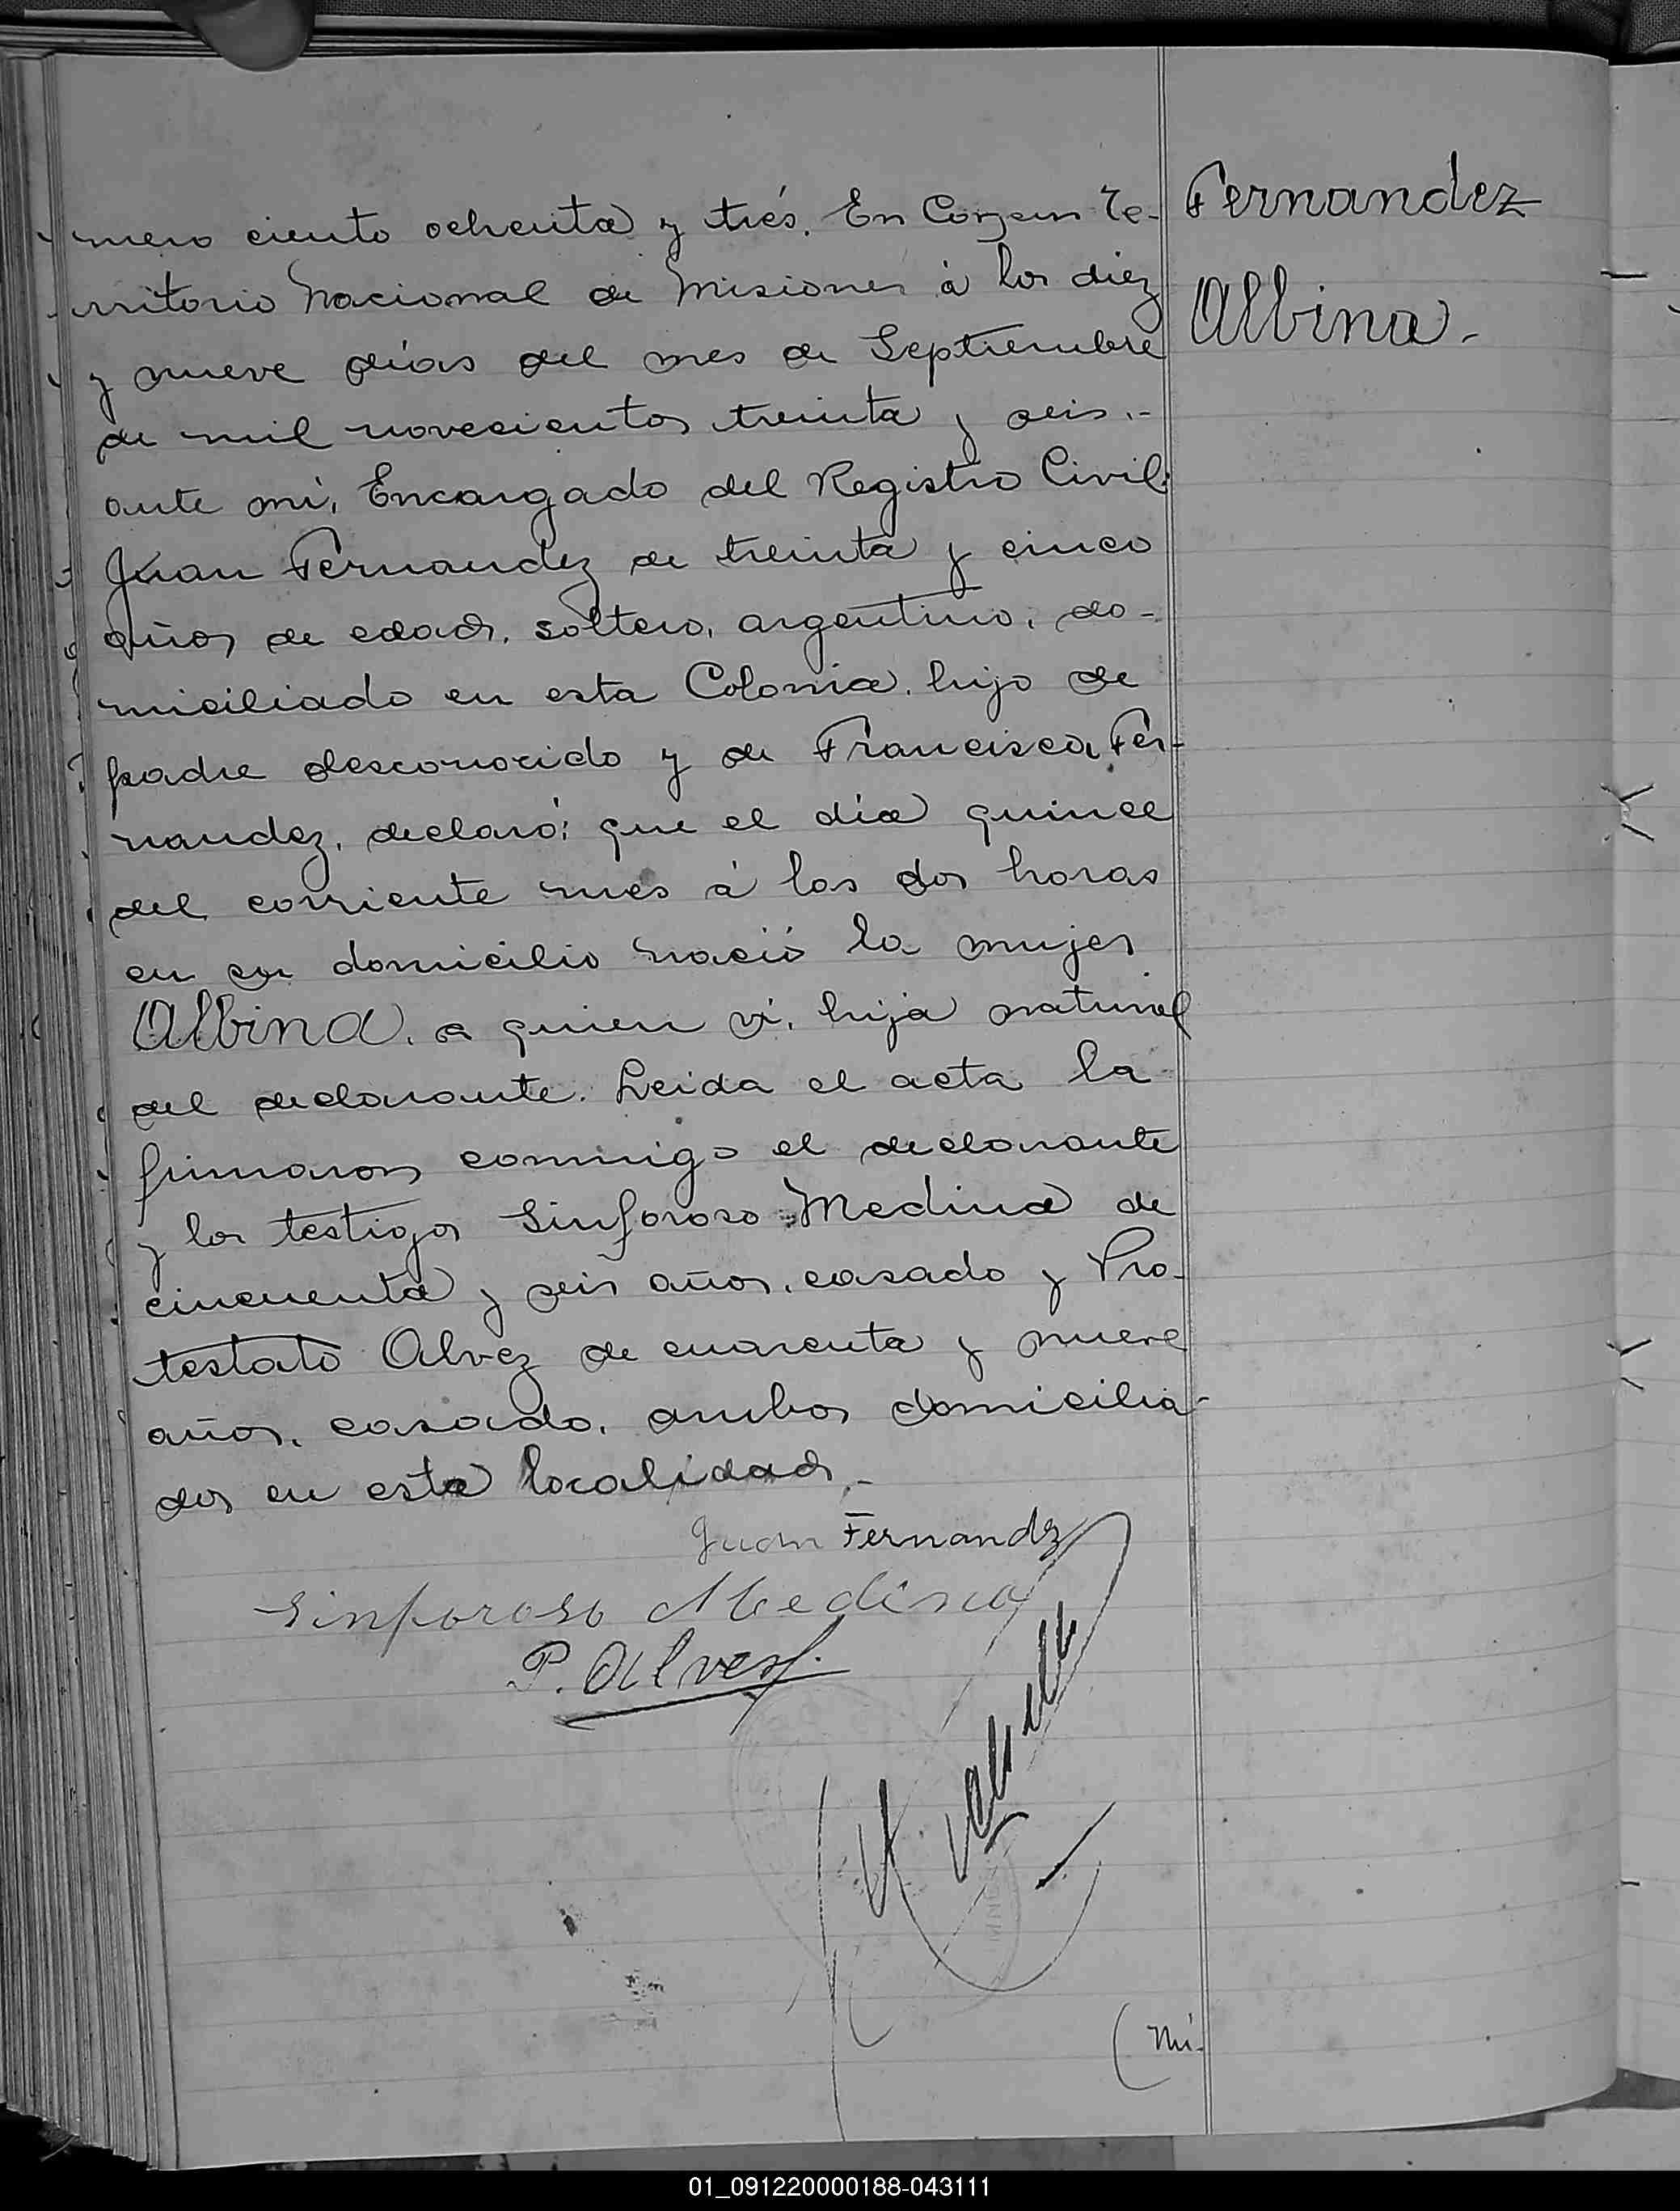 mero ciento ochenta y trés. En Cerro Te-
rritorio Nacional de Misiones à los diez
y nueve dias del mes de Septiembre
de mil novecientos treinta y seis.-
ante mi, Encargado del Registro Civil;
Juan Fernandez de treinta y cinco
años de edad, soltero, argentino, do-
miciliado en esta Colonia, hijo de
padre desconocido y de Francisca Fer-
nandez, declaró: que el día quince
del corriente mes à las dos horas
en su domicilio nació la mujer
Albina, a quien vi, hija natural
del declarante. Leida el acta la
firmaron conmigo el declarante
y los testigos Sinforoso Medina de
cincuenta y seis años, casado y Pro-
testato Alvez de cuarenta y nueve
años, casado, ambos domicilia-
dos en esta localidad.-
Fernandez
Albina.-
Juan Fernandz
Sinforoso Medina
P. Alvez.
(Nú-
01_091220000188-043111